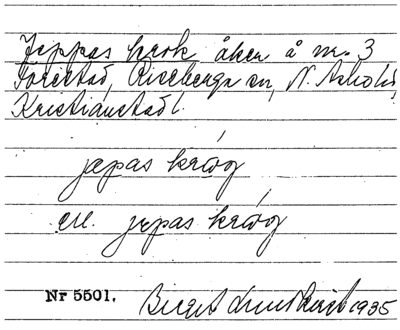 Jeppas krok åker å nr. 3
Förestad, Riseberga sn, N. Åsbo hd,
Kristianstad l.
japas krōg
el. jepas krōg
Nr 5501. Birgit 1935